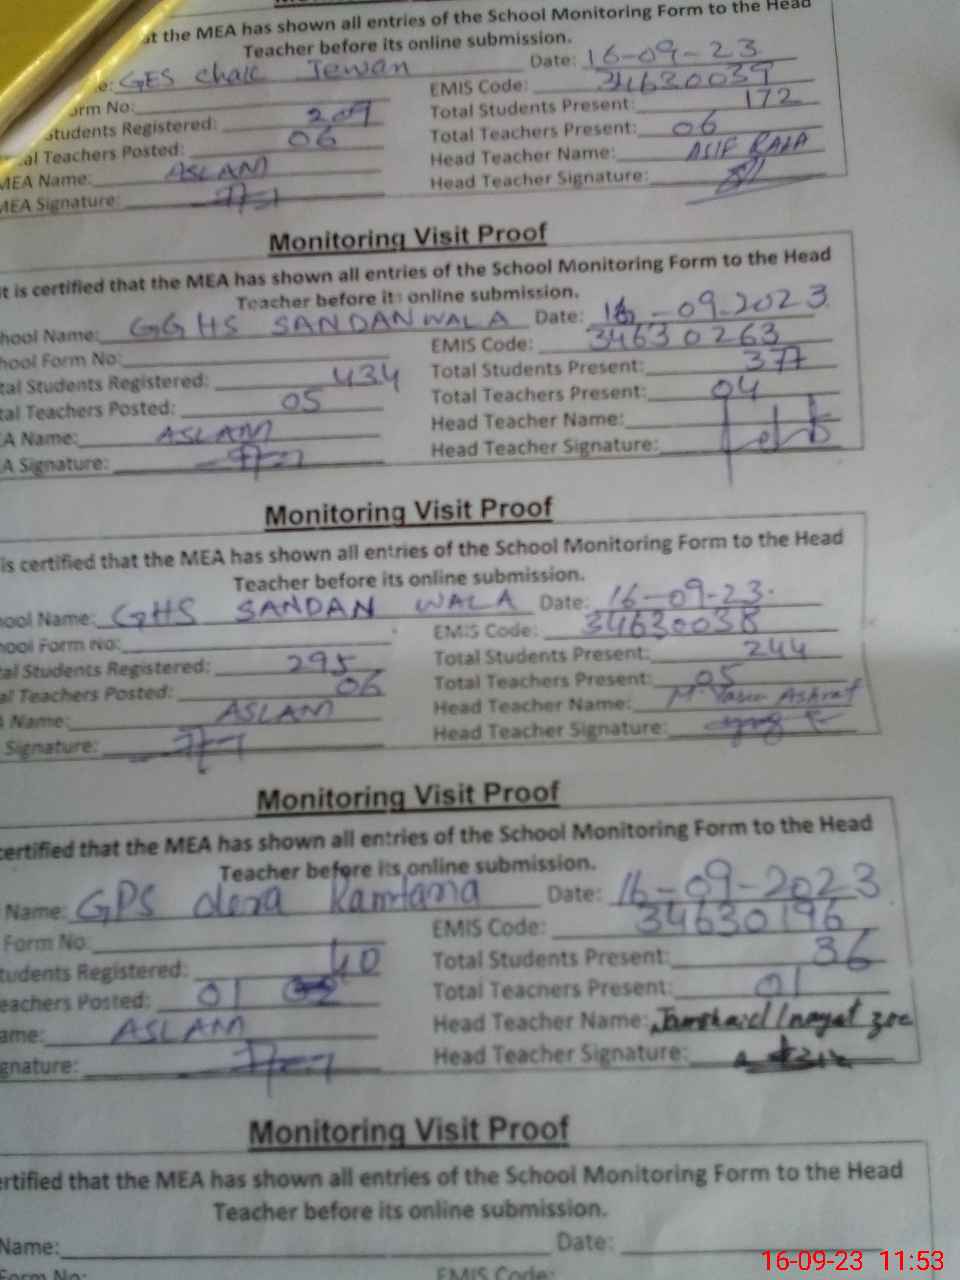 at the MEA has shown all entries of the School Monitoring Form to the Head
Teacher before its online submission.
e: GES chak Jewan Date: 16-09-23
EMIS Code: 34630039
orm No: Total Students Present: 172
Students Registered: 209 Total Teachers Present: 06
al Teachers Posted: 06 Head Teacher Name: ASIF RAZA
MEA Name: ASLAM Head Teacher Signature:
MEA Signature:
Monitoring Visit Proof
it is certified that the MEA has shown all entries of the School Monitoring Form to the Head
Teacher before its online submission.
hool Name: GGHS SANDANWALA Date: 16-09-2023
hool Form No: EMIS Code: 34630263
tal Students Registered: 434 Total Students Present: 377
tal Teachers Posted: 05 Total Teachers Present: 04
A Name: ASLAM Head Teacher Name:
A Signature: Head Teacher Signature:
Monitoring Visit Proof
is certified that the MEA has shown all entries of the School Monitoring Form to the Head
Teacher before its online submission.
hool Name: GHS SANDAN WALA Date: 16-09-23.
hool Form No: EMIS Code: 34630038
tal Students Registered: 295 Total Students Present: 244
al Teachers Posted: 06 Total Teachers Present: 05
Name: ASLAM Head Teacher Name: M Yasir Ashraf
Signature: Head Teacher Signature:
Monitoring Visit Proof
certified that the MEA has shown all entries of the School Monitoring Form to the Head
Teacher before its online submission.
Name: GPS dera Date: 16-09-2023
Form No: EMIS Code: 34630196
tudents Registered: 40 Total Students Present: 36
eachers Posted: 01 Total Teachers Present: 01
ame: ASLAM Head Teacher Name:
gnature: Head Teacher Signature:
Monitoring Visit Proof
ertified that the MEA has shown all entries of the School Monitoring Form to the Head
Teacher before its online submission.
Name: Date:
Form No: EMIS Code:
16-09-23 11:53